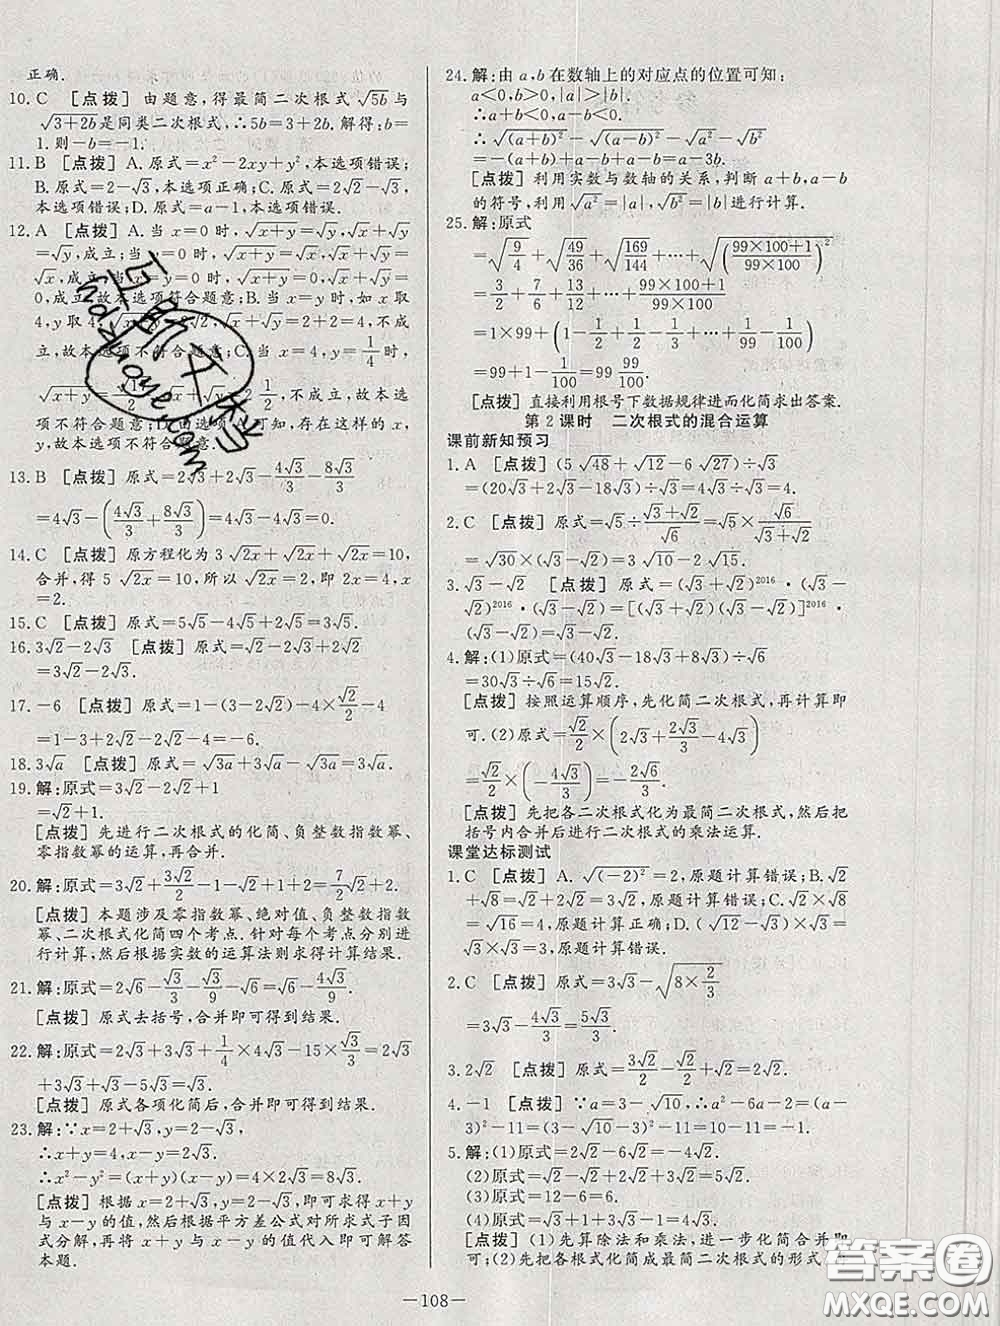 正确.
10. C [点拨] 由题意,得最简二次根式√5b与
√3+2b是同类二次根式,∴5b=3+2b.解得:b=
1.则-b=-1.
11. B [点拨] A.原式=x²-2xy+y²,本选项错误;
B.原式=2-√3,本选项正确;C.原式=2√2-√3,
本选项错误;D.原式=a-1,本选项错误.
12. A [点拨] A.当x=0时,√x+y=√y,√x+√y
=√y,成立;当y=0时,√x+y=√x,√x+√y=
√x,成立;当x=y=0时,√x+y=0,√x+√y=
0,成立,故本选项符合题意;B.当x=y时,如x取
4,y取4,√x+y=2√2,√x+√y=2+2=4,不成
立,故本选项不符合题意;C.当x=4,y=1/4时,
不成立,故本选项
不符合题意;D.由选项A可知,存在这样的x,
不符合题意.
13. B [点拨] 原式=2√3+2√3-4√3/3-8√3/3
=4√3-(4√3/3+8√3/3)=4√3-4√3=0.
14. C [点拨] 原方程化为3√2x+√2x+√2x=10,
合并,得5√2x=10,所以√2x=2,即2x=4,x
=2.
15. C [点拨] 原式=5√5-4√5+2√5=3√5.
16. 3√2-2√3 [点拨] 原式=√2-2√3+2√2
=3√2-2√3.
17. -6 [点拨] 原式=1-(3-2√2)-4×√2/2-4
=1-3+2√2-2√2-4=-6.
18. 3√3a [点拨] 原式=√3a+3√3a-√3a=3√3a.
19. 解:原式=3√2-2√2+1
=√2+1.
[点拨] 先进行二次根式的化简、负整数指数幂、
零指数幂的运算,再合并.
20. 解:原式=3√2+3√2/2-1-√2+1+2=7/2√2+2.
[点拨] 本题涉及零指数幂、绝对值、负整数指数
幂、二次根式化简四个考点.针对每个考点分别进
行计算,然后根据实数的运算法则求得计算结果.
21. 解:原式=2√6-√3/3-√3/9-√6=√6-4√3/9.
[点拨] 原式去括号,合并即可得到结果.
22. 解:原式=2√3+3√3+1/4×4√3-15×√3/3=2√3
+3√3+√3-5√3=√3.
[点拨] 原式各项化简后,合并即可得到结果.
23. 解:∵x=2+√3,y=2-√3,
∴x+y=4,x-y=2√3.
∴x²-y²=(x+y)(x-y)=4×2√3=8√3.
[点拨] 根据x=2+√3,y=2-√3,即可求得x+y
与x-y的值,然后根据平方差公式对所求式子因
式分解,再将x+y与x-y的值代入即可解答
本题.
24. 解:由a,b在数轴上的对应点的位置可知:
a<0,b>0,|a|>|b|.
∴a+b<0,a-b<0.
∴√(a+b)²-√(a-b)²-√a²-√b²
=-(a+b)+(a-b)+a-b=a-3b.
[点拨] 利用实数与数轴的关系,判断a+b,a-b
的符号,利用√a²=|a|,√b²=|b|进行计算.
25. 解:原式
=√9/4+√49/36+√169/144+…+√((99×100+1)/(99×100))²
=3/2+7/6+13/12+…+(99×100+1)/(99×100)
=1×99+(1-1/2+1/2-1/3+…+1/99-1/100)
=99+1-1/100=99 99/100.
[点拨] 直接利用根号下数据规律进而化简求出答案.
第2课时 二次根式的混合运算
课前新知预习
1. A [点拨] (5√48+√12-6√27)÷√3
=(20√3+2√3-18√3)÷√3=4√3÷√3=4.
2. C [点拨] 原式=√5÷(√3+√2)/√6=√5×√6/(√3+√2)
=√30×(√3-√2)=3√10-2√15.
3. √3-√2 [点拨] 原式=(√3+√2)²⁰¹⁶×(√3-
√2)²⁰¹⁶·(√3-√2)=[(√3+√2)(√3-√2)]²⁰¹⁶·
(√3-√2)=√3-√2.
4. 解:(1)原式=(40√3-18√3+8√3)÷√6
=30√3÷√6=15√2.
[点拨] 按照运算顺序,先化简二次根式,再计算即
可.(2)原式=√2/2×(2√3+2√3/3-4√3)
=√2/2×(-4√3/3)=-2√6/3.
[点拨] 先把各二次根式化为最简二次根式,然后把
括号内合并后进行二次根式的乘法运算.
课堂达标测试
1. C [点拨] A.√(-2)²=2,原题计算错误;B.√2
+√8=√2+2√2=3√2,原题计算错误;C.√2×√8
=√16=4,原题计算正确;D.(√27-√12)÷√3=
√27÷√3-√12÷√3=3-2=1,原题计算错误.
2. C [点拨] 原式=3√3-√(8×2/3)
=3√3-4√3/3=5√3/3.
3. 2√2 [点拨] 原式=3√2/2-√2/2+√2=2√2.
4. -1 [点拨] ∵a=3-√10,∴a²-6a-2=(a-
3)²-11=(3-√10-3)²-11=10-11=-1.
5. 解:(1)原式=2√2-6√2=-4√2.
(3)原式=12-6=6.
[点拨] (1)先算除法和乘法,进一步化简合并即
可;(2)先把各根式化简成最简二次根式的形式
—108—
答案圈
MXQE.COM